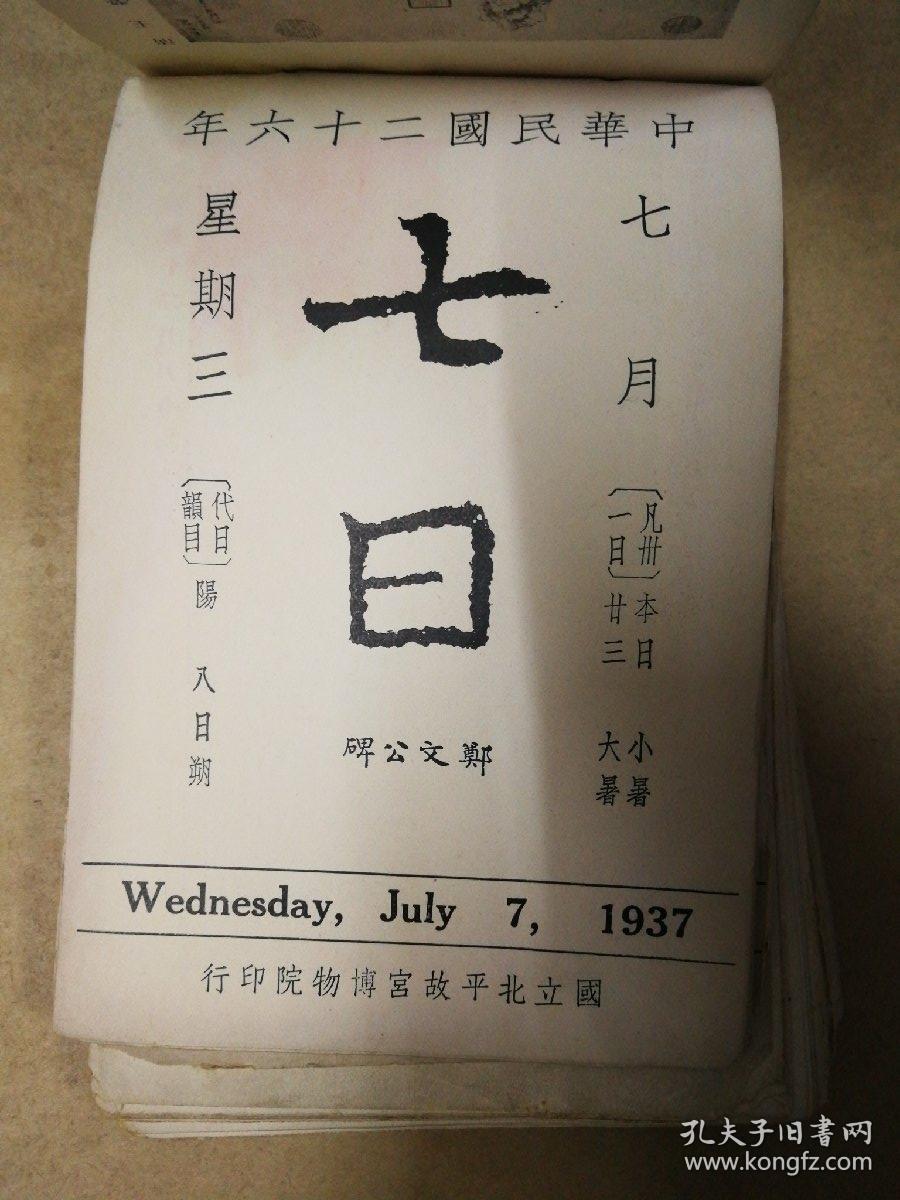 中華民國二十六年
七月
〔凡卅一日〕
本日 小暑
廿三 大暑
七日
鄭文公碑
星期三
〔代日韻目〕陽 八日朔
Wednesday, July 7, 1937
國立北平故宮博物院印行
孔夫子旧書网
www.kongfz.com